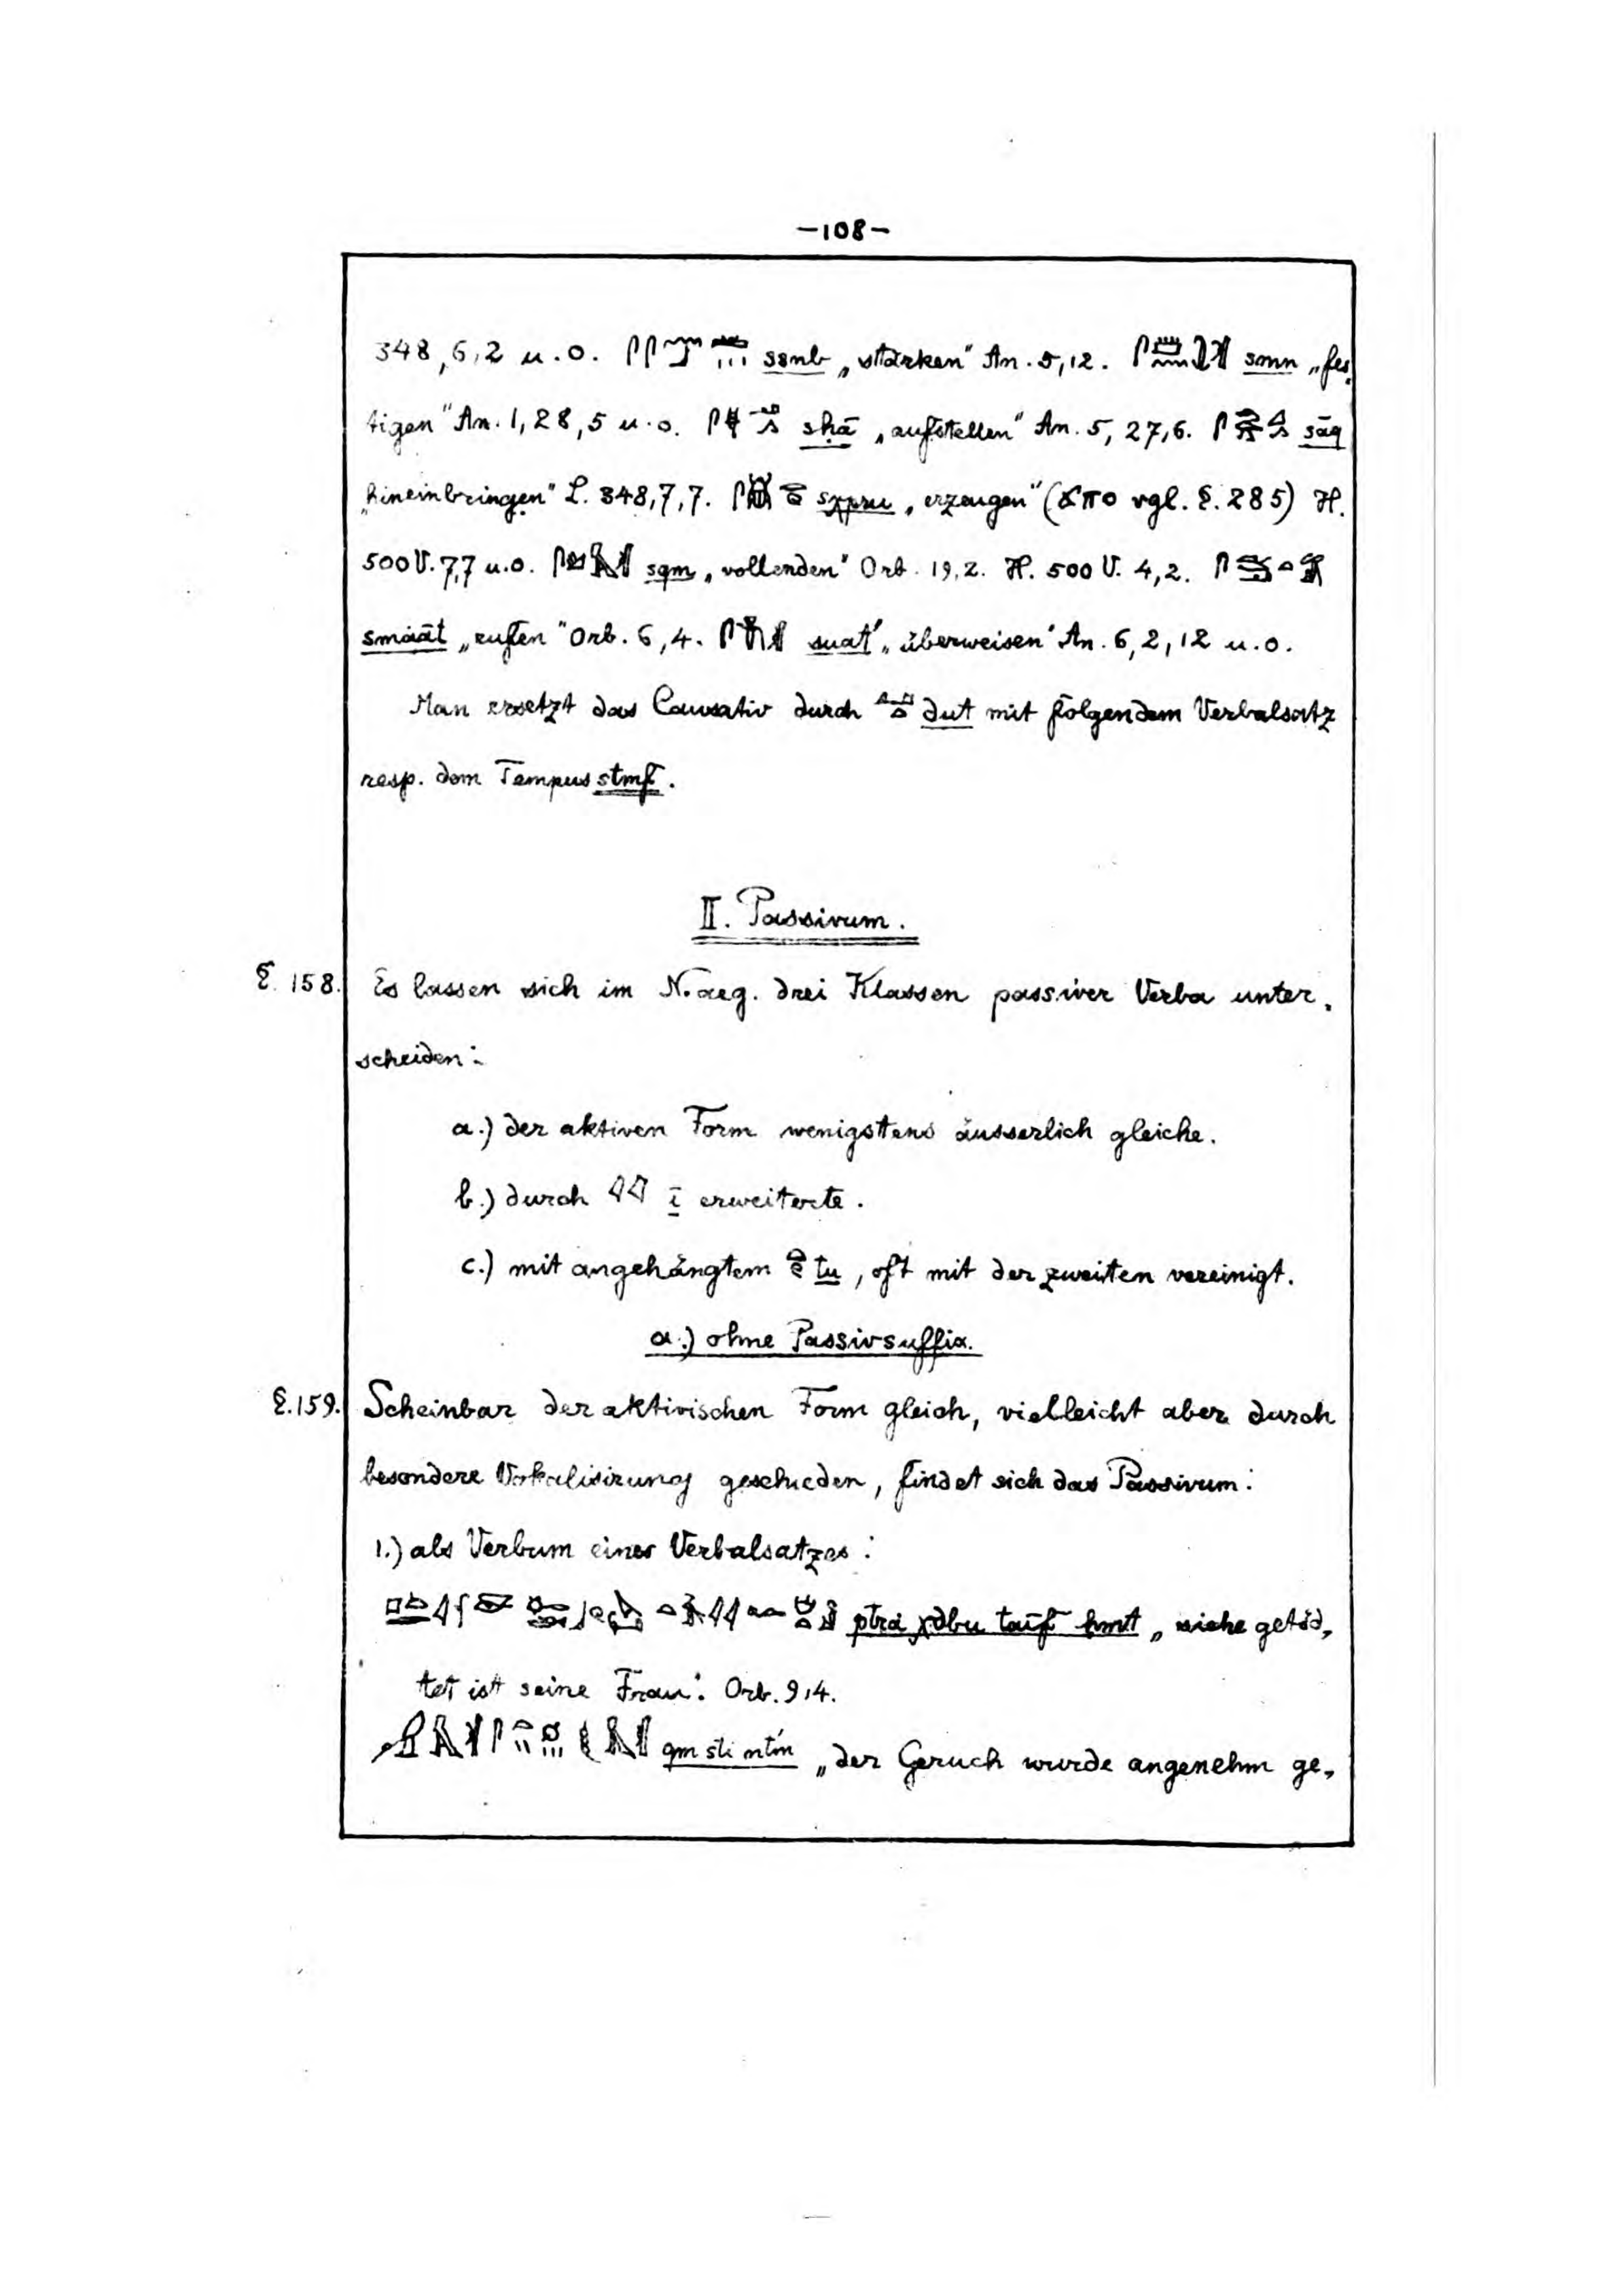 —108—
348,6,2 u. o. ssnb „stärken" An. 5,12. smn „fes-
tigen" An. 1,28,5 u. o. sḥā „aufstellen" An. 5, 27,6. sāq
„hineinbringen" L. 348,7,7. sχpru „erzeugen" (ϫⲡⲟ vgl. §. 285) H.
500 V. 7,7 u. o. sqm „vollenden" Orb. 19,2. H. 500 V. 4,2.
småāt „rufen" Orb. 6,4. suat' „überweisen" An. 6,2,12 u. o.
Man ersetzt das Causativ durch dut mit folgendem Verbalsatz
resp. dem Tempus stmf.
II. Passivum.
§. 158. Es lassen sich im N.aeg. drei Klassen passiver Verba unter-
scheiden:
a.) der aktiven Form wenigstens äusserlich gleiche.
b.) durch 𓇋𓇋 ī erweiterte.
c.) mit angehängtem tu, oft mit der zweiten vereinigt.
a.) ohne Passivsuffix.
§. 159. Scheinbar der aktivischen Form gleich, vielleicht aber durch
besondere Vokalisirung geschieden, findet sich das Passivum:
1.) als Verbum eines Verbalsatzes:
ptrå χdbu taif ḥmt „siehe getöd-
tet ist seine Frau". Orb. 9,4.
qm sti ntm „der Geruch wurde angenehm ge-